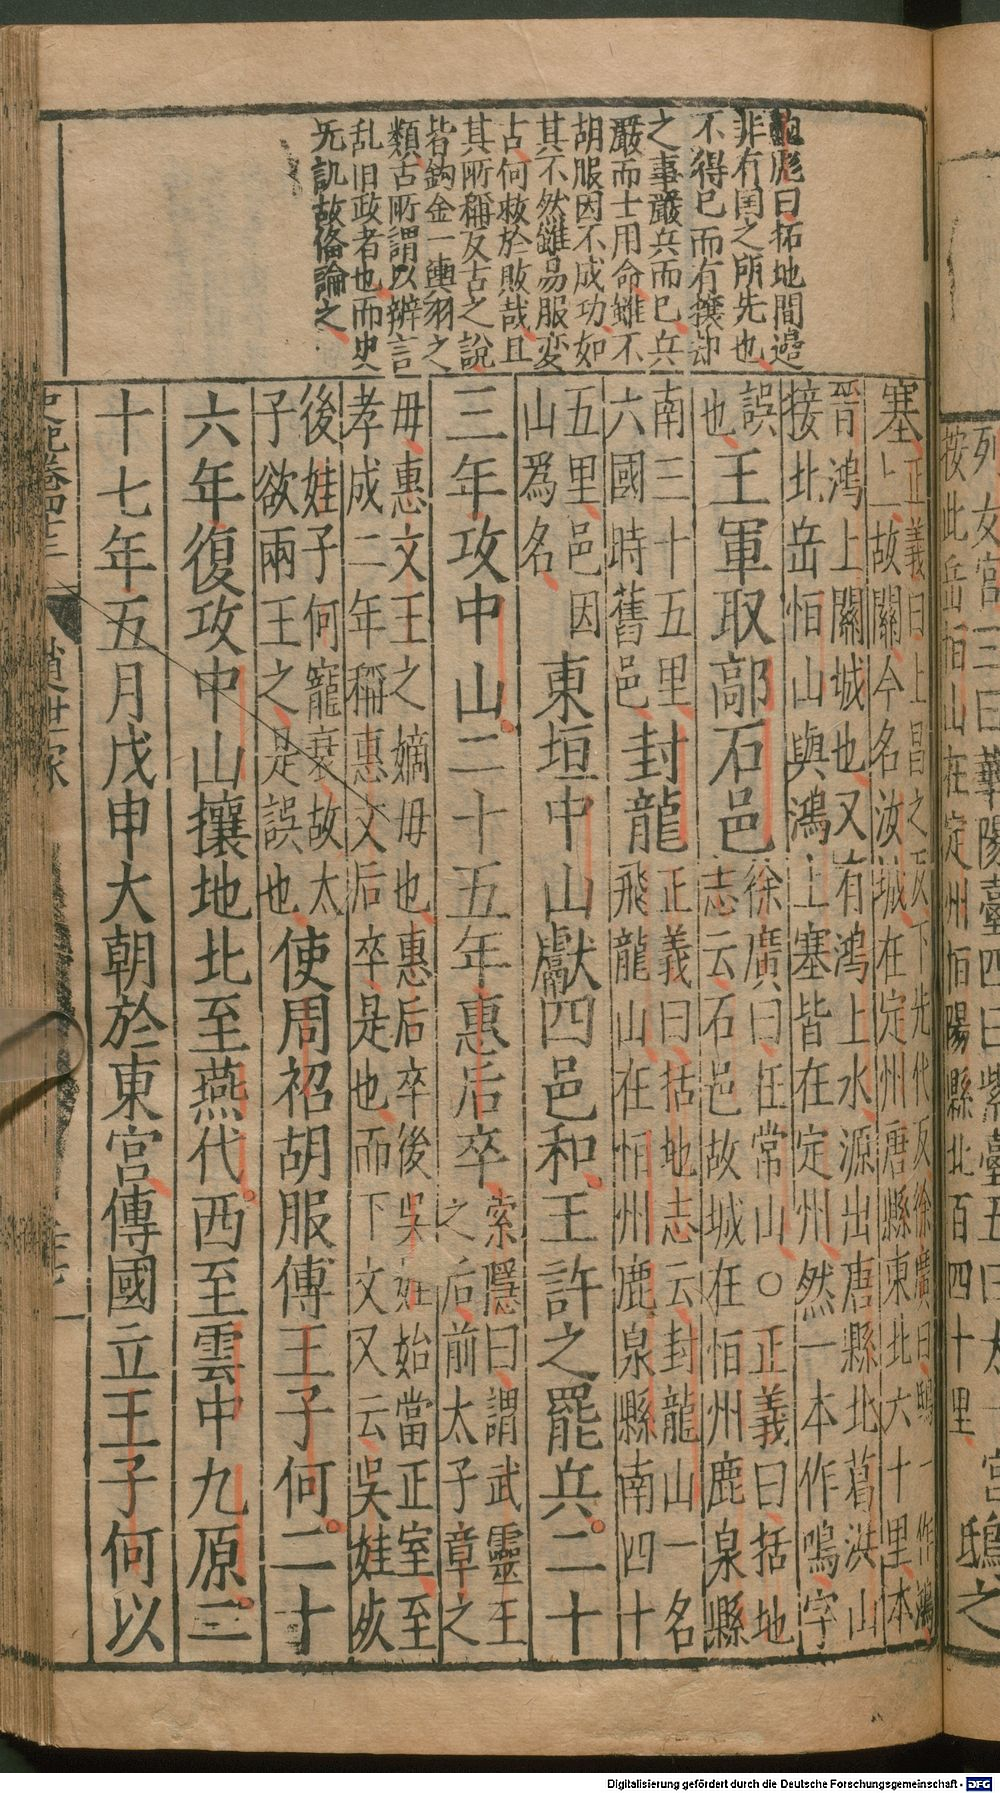 鮑彪曰拓地間邉
非有国之所先也
不得已而有攘却
之事嚴兵而已兵
嚴而士用命雖不
胡服因不成功如
其不然雖易服変
古何救於敗哉且
其所稱反古之說
皆鈎金一輿羽之
類古所謂以辨言
乱旧政者也而史
无訊故俻論之
列女宮三曰華陽臺四曰紫臺五曰太一宮
按北岳恒山在定州恒陽縣北百四十里
鴟之
塞正義曰上昌之反下先代反徐廣曰鴟一作鴻
上故關今名汝城在定州唐縣東北六十里本
晉鴻上關城也又有鴻上水源出唐縣北葛洪山
接北岳恒山與鴻上塞皆在定州然一本作鳴字
誤
也王軍取鄗石邑徐廣曰在常山○正義曰括地
志云石邑故城在恒州鹿泉縣
南三十五里
六國時舊邑封龍正義曰括地志云封龍山一名
飛龍山在恒州鹿泉縣南四十
五里邑因
山爲名東垣中山獻四邑和王許之罷兵二十
三年攻中山二十五年惠后卒索隱曰謂武靈王
之后前太子章之
毋惠文王之嫡毋也惠后卒後吳娃始當正室至
孝成二年稱惠文后卒是也而下文又云吳娃死
後娃子何寵衰故太
子欲兩王之是誤也使周袑胡服傅王子何二十
六年復攻中山攘地北至燕代西至雲中九原二
十七年五月戊申大朝於東宮傳國立王子何以
史記卷四十三
趙世家
Digitalisierung gefördert durch die Deutsche Forschungsgemeinschaft - DFG